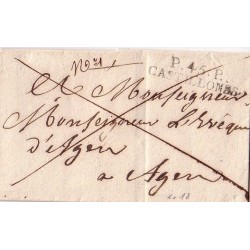 No 71
P. 45. P.
CASTILLONES
A Monseigneur
Monseigneur L'Evêque
d'Agen
a Agen